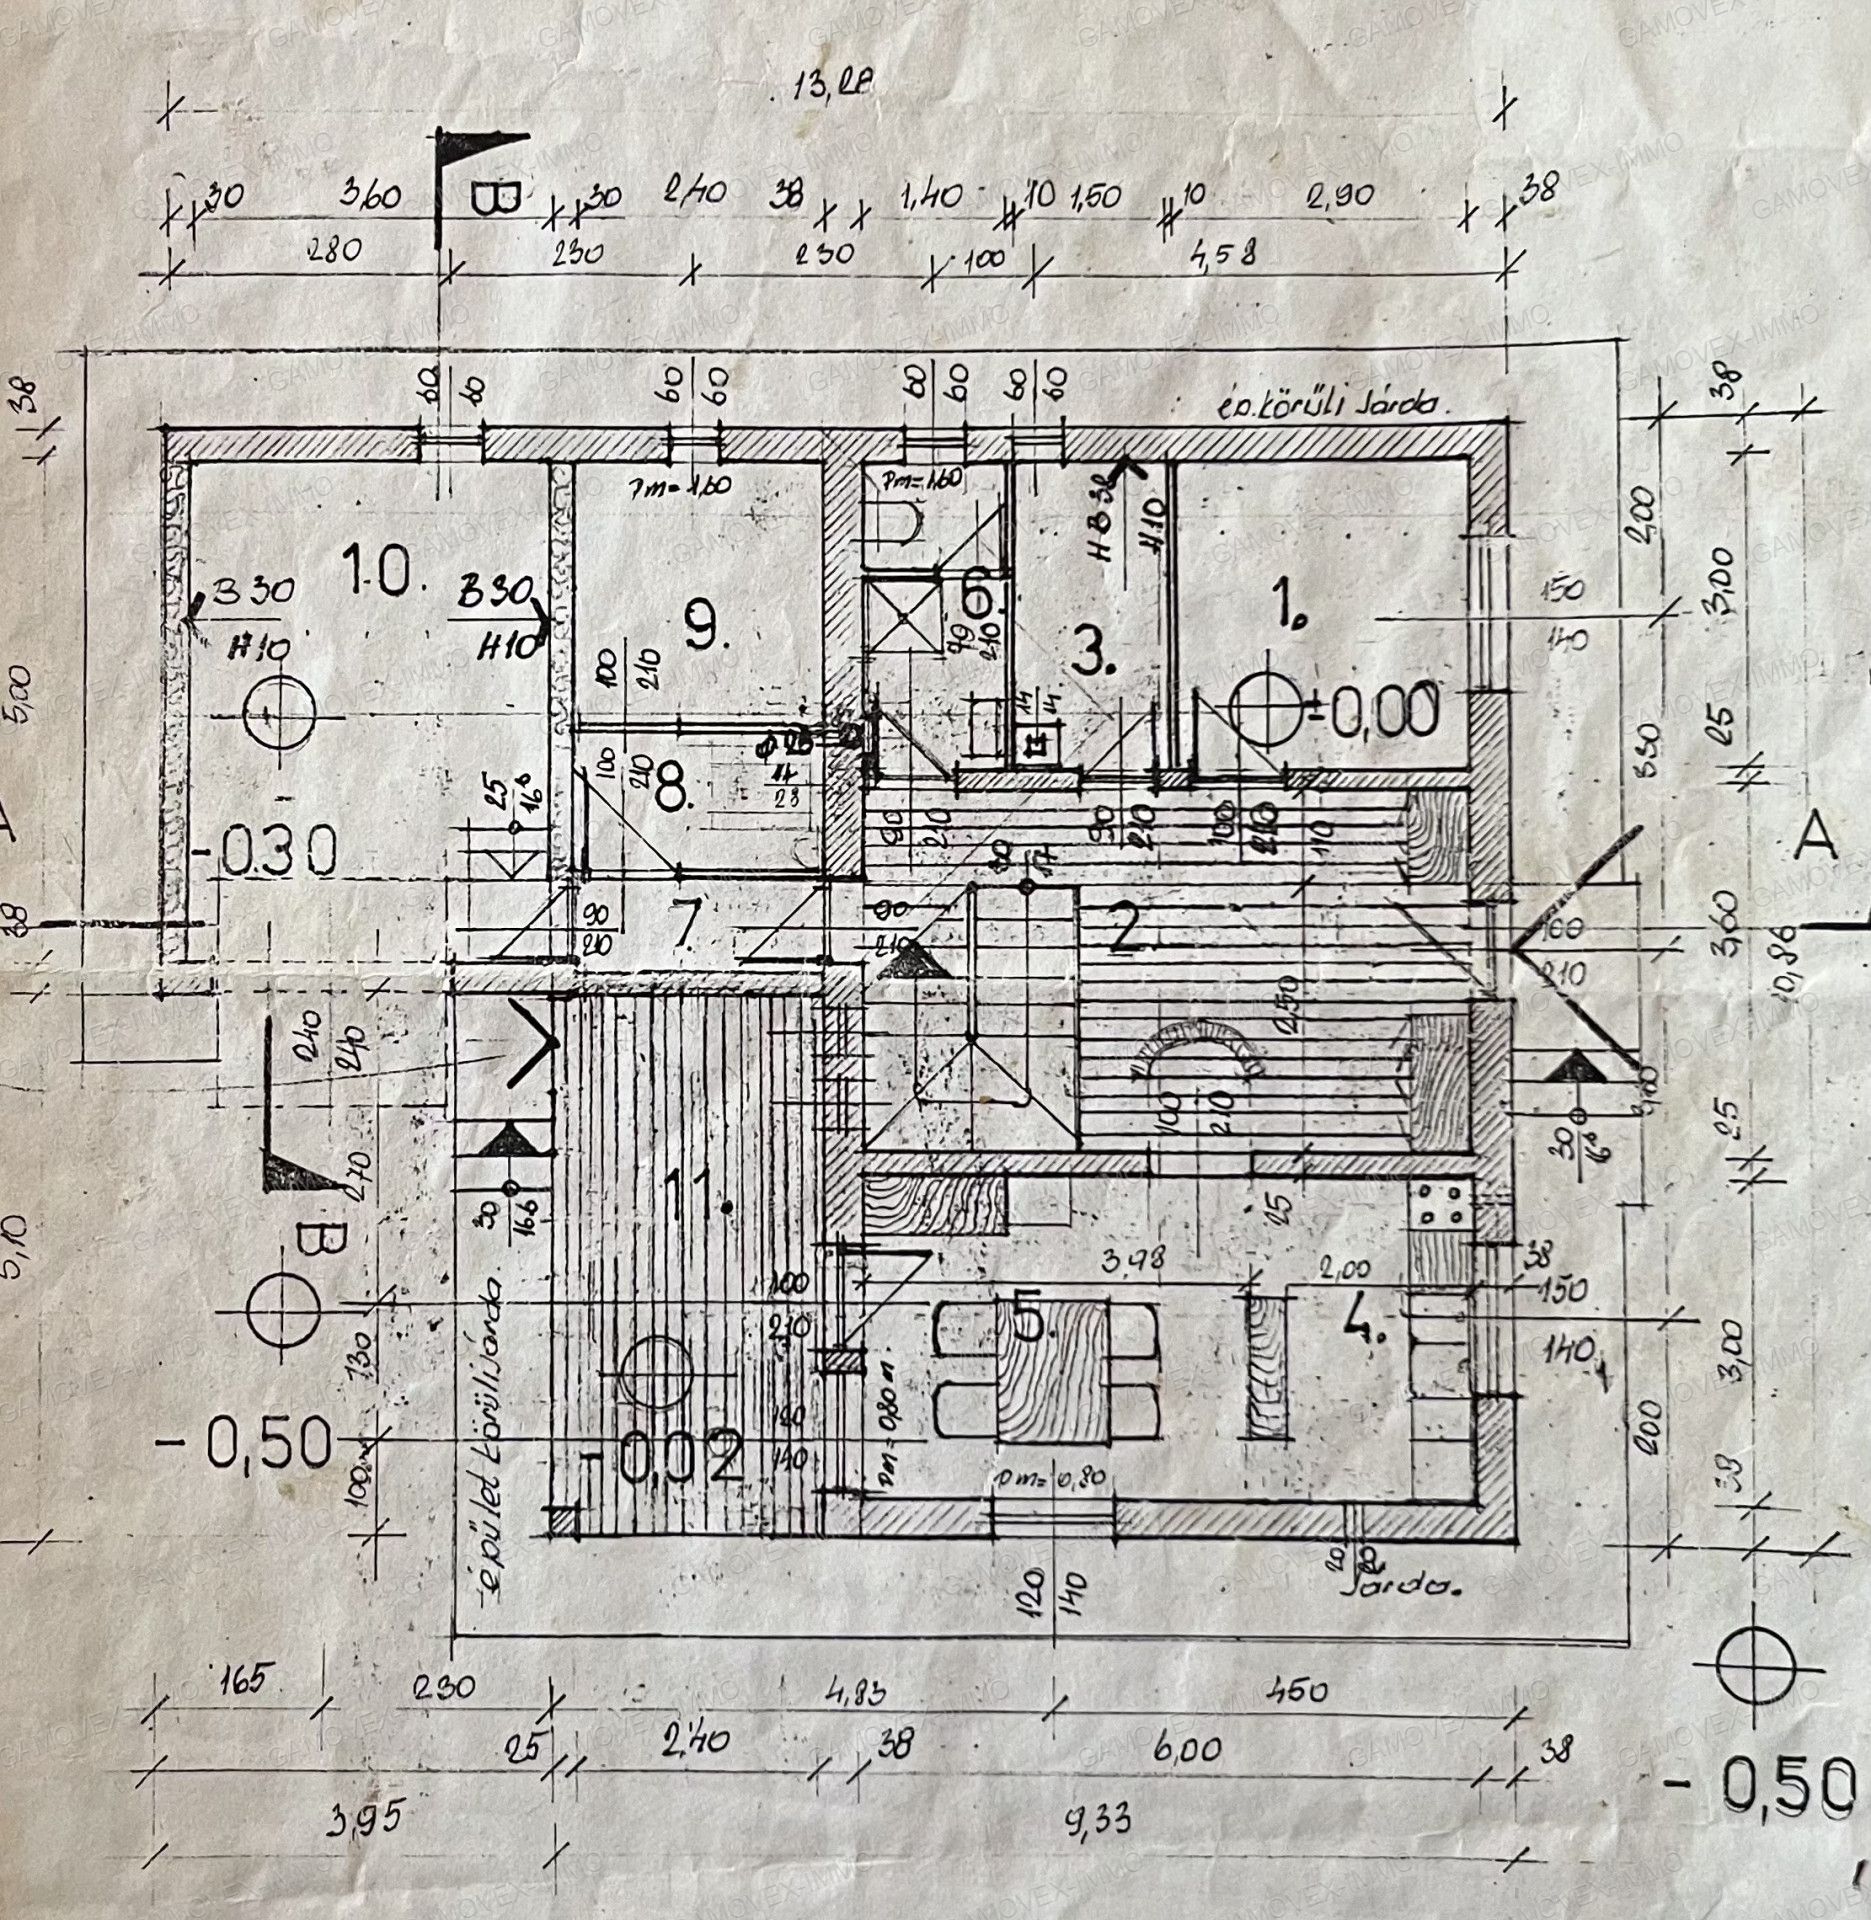 13,28
30 3,60 B 30 2,40 38 1,40 10 1,50 10 2,90 38
280 230 230 100 4,58
38 60 60 60 60 60 60 60 60 38
ép.körüli Járda.
Pm=1,60 Pm=1,60
10. 9. 6. 3. 1.
B 30 H10 B 30 H10 HB 38 H10
200 3,00 150 140
5,00 100 210 210 14 14 ±0,00
25 330
-0.30 25 16⁶ 100 210 8. 14 23
90 210 90 210 100 210 110
A
38 90 210 7. 90 210 2. 160 210 3,60 10,86
240 240 250
100 210 30 16⁶ 25
270 11. 30 16⁶
B 5,10
25 3,98 2,00 38
100 210 5. 4. 150 140 3,00
130
-0,50 -0,02 120 140 Pm=0,80m. 200
100 épület körüli járda. Pm=0,80 38
120 140 20 20 Járda.
165 230 4,83 450
25 2,40 38 6,00 38
3,95 9,33
-0,50
GAMOVEX-IMMO